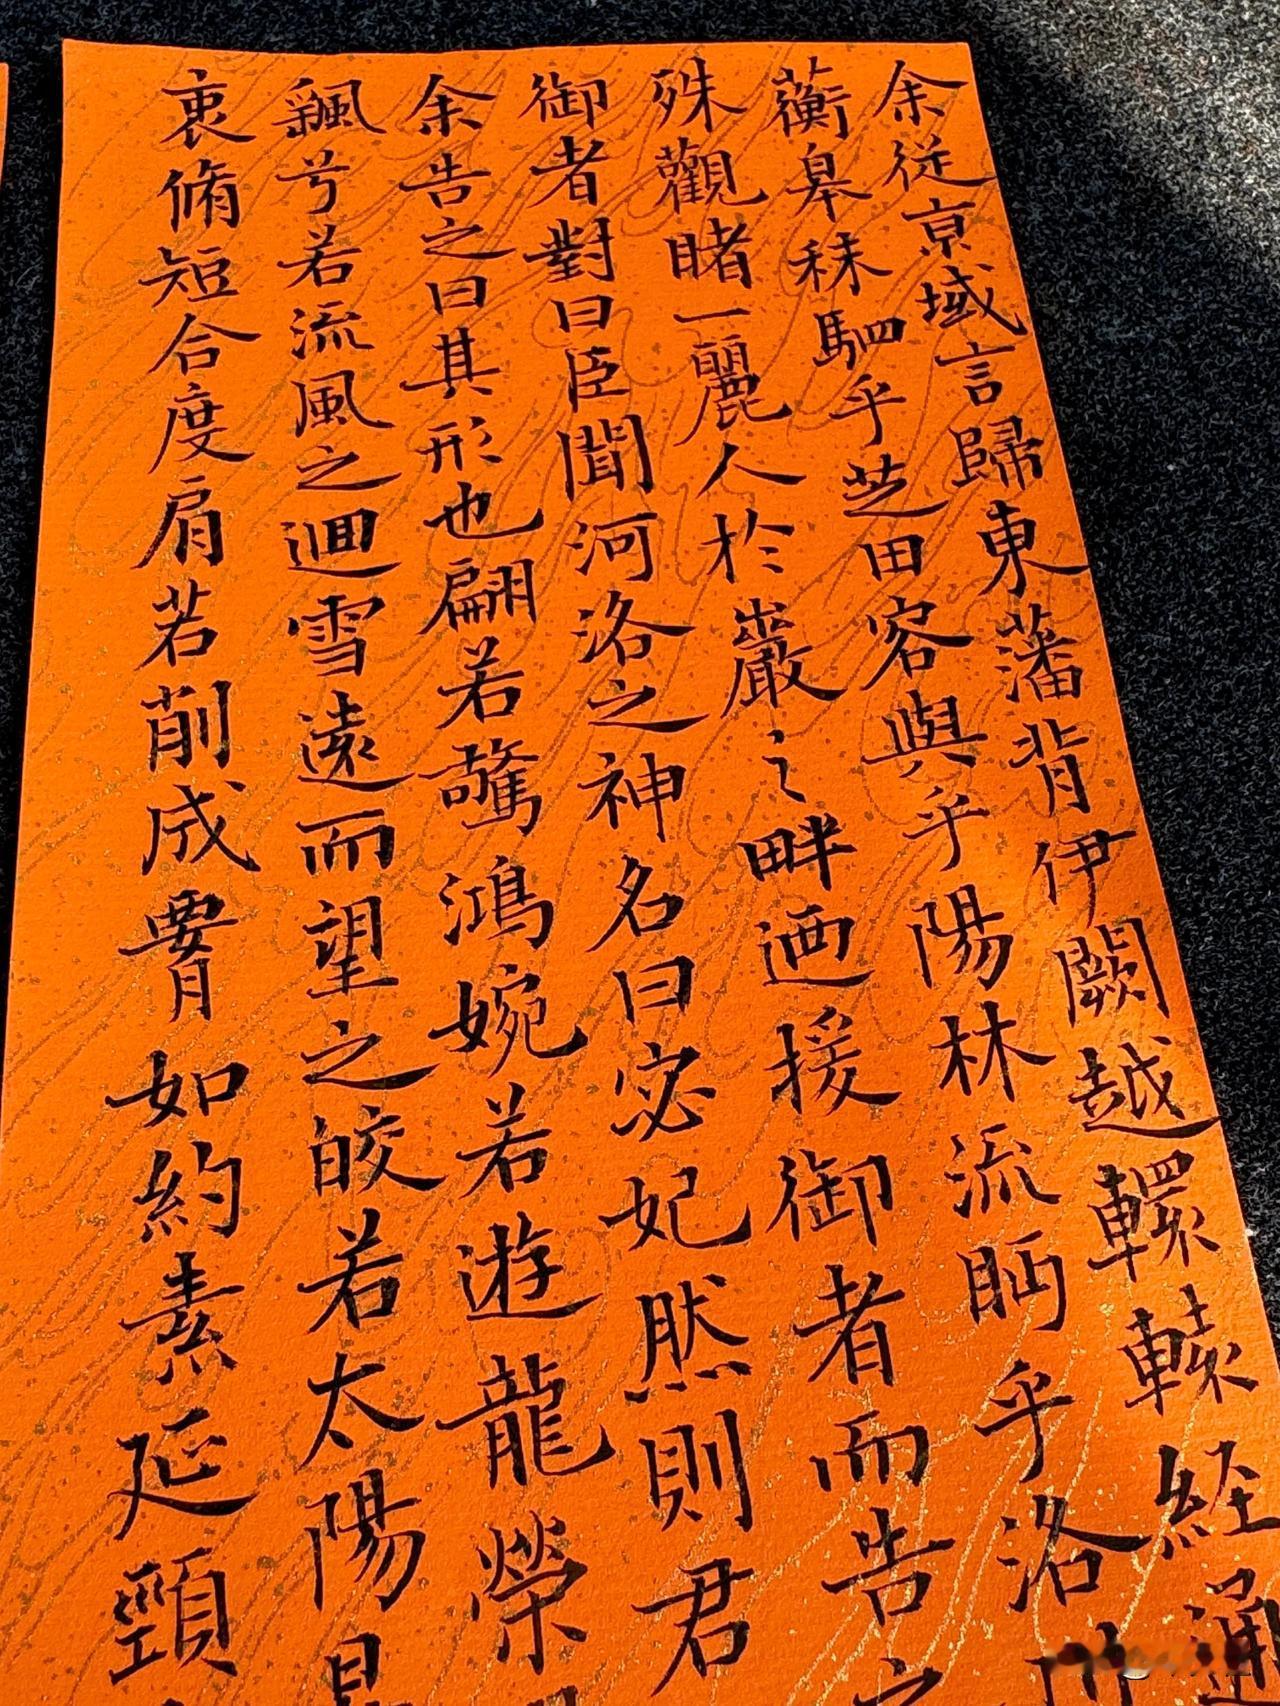 余從京域言歸東藩背伊闕越轘轅経通
蘅皋秣駟乎芝田容與乎陽林流眄乎洛
殊觀睹一麗人於巖之畔迺援御者而告之
御者對曰臣聞河洛之神名曰宓妃然則君
余告之曰其形也翩若驚鴻婉若遊龍榮
飄兮若流風之迴雪遠而望之皎若太陽
衷脩短合度肩若削成䙅如約素延頸